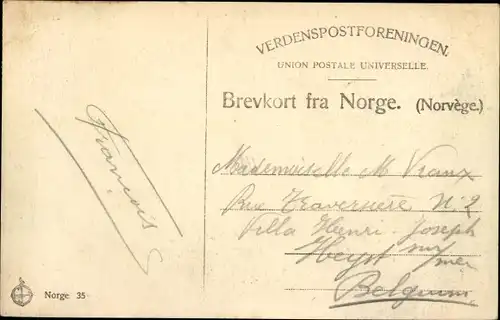 VERDENSPOSTFORENINGEN.
UNION POSTALE UNIVERSELLE.
Brevkort fra Norge. (Norvège.)
François
Mademoiselle M
Rue Traversière N. 2
Villa Henri-Joseph
Heyst sur mer
Belgium
Norge 35